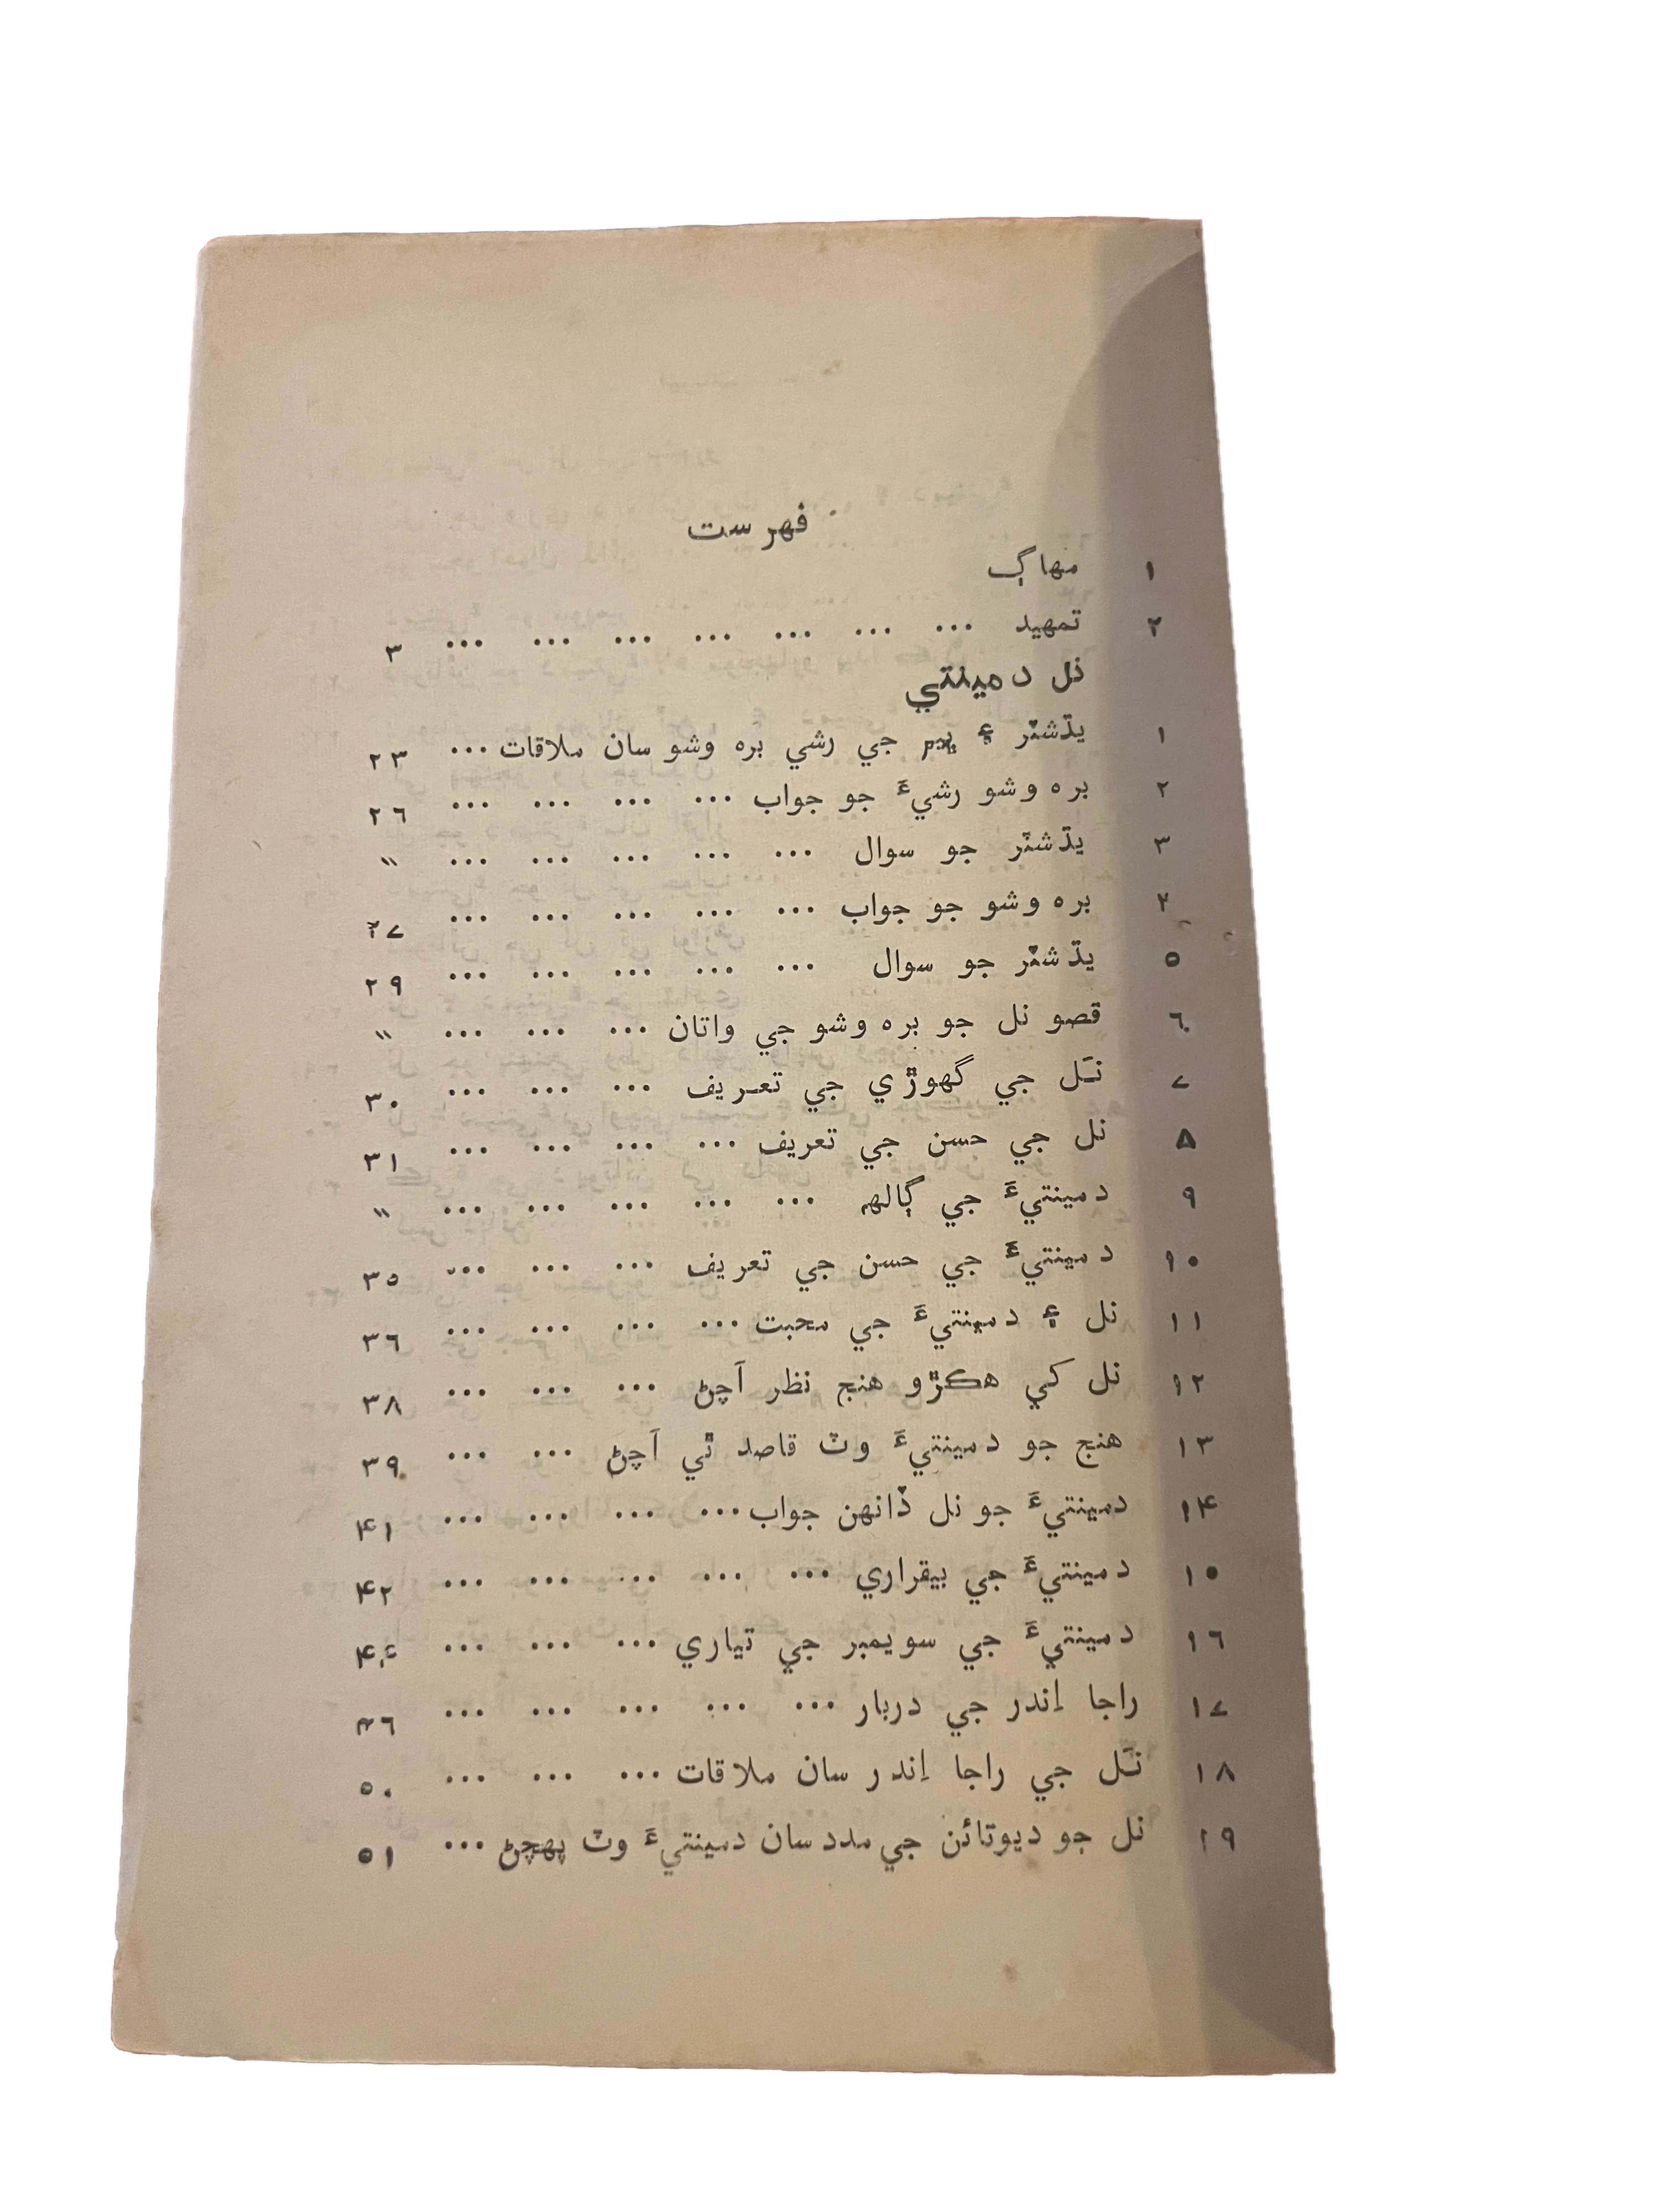 فهرست
١ مهاڳ
٢ تمهيد ... ... ... ... ... ... ... ٣
نل دمينتي
١ يڌشٽر ۽ ڀيم جي رشي بره وشو سان ملاقات ... ٢٣
٢ بره وشو رشيءَ جو جواب ... ... ... ... ٢٦
٣ يڌشٽر جو سوال ... ... ... ... ... ״
٤ بره وشو جو جواب ... ... ... ... ... ٢٧
٥ يڌشٽر جو سوال ... ... ... ... ... ٢٩
٦ قصو نل جو بره وشو جي واتان ... ... ... ״
٧ نَل جي گهوڙي جي تعريف ... ... ... ٣٠
٨ نل جي حسن جي تعريف ... ... ... ... ٣١
٩ دمينتيءَ جي ڳالهه ... ... ... ... ... ״
١٠ دمينتيءَ جي حسن جي تعريف ... ... ... ٣٥
١١ نل ۽ دمينتيءَ جي محبت ... ... ... ... ٣٦
١٢ نل کي هڪڙو هنج نظر آچڻ ... ... ... ٣٨
١٣ هنج جو دمينتيءَ وٽ قاصد ٿي آچڻ ... ... ٣٩
١۴ دمينتيءَ جو نل ڏانهن جواب ... ... ... ... ۴١
١٥ دمينتيءَ جي بيقراري ... ... ... ... ... ۴٢
١٦ دمينتيءَ جي سويمبر جي تياري ... ... ... ۴۴
١٧ راجا اِندر جي دربار ... ... ... ... ... ۴٦
١٨ نَل جي راجا اِندر سان ملاقات ... ... ... ٥٠
١٩ نل جو ديوتائن جي مدد سان دمينتيءَ وٽ پهچڻ ... ٥١